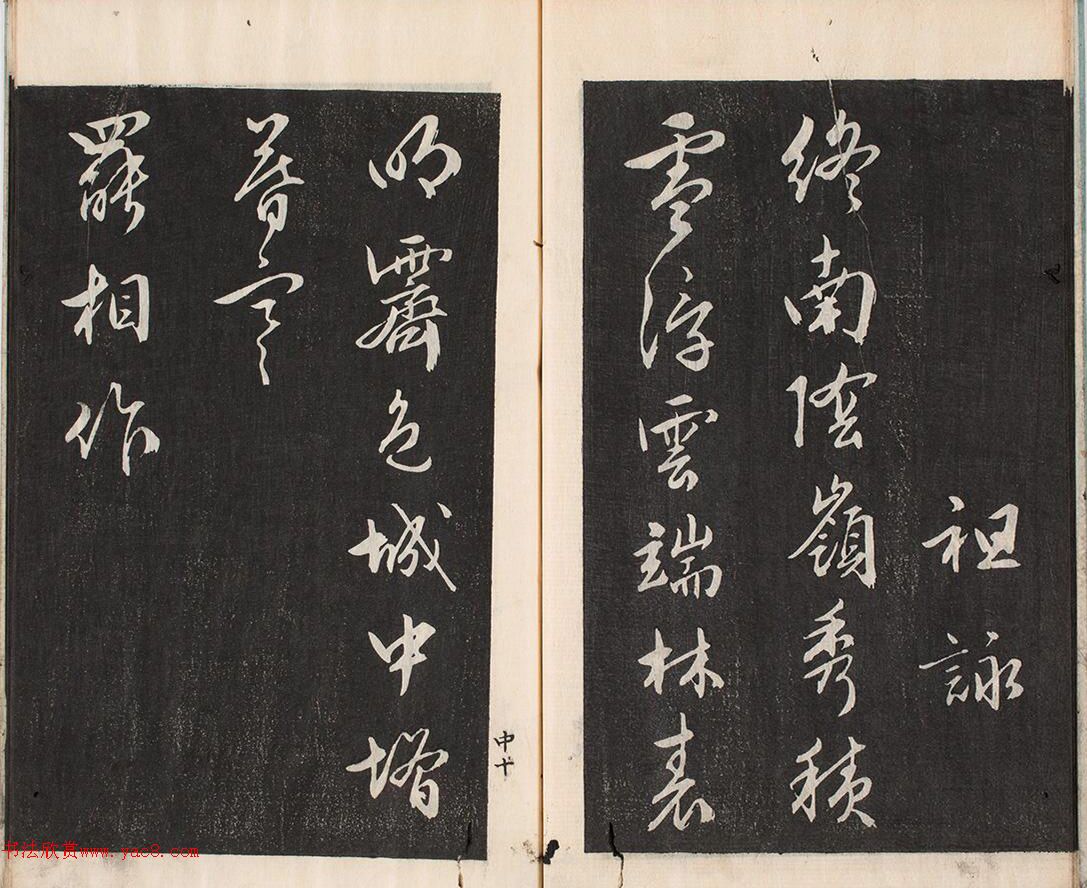 祖詠
終南陰嶺秀積
雪浮雲端林表
中十
明霽色城中增
暮寒
罷相作
书法欣赏www.yac8.com